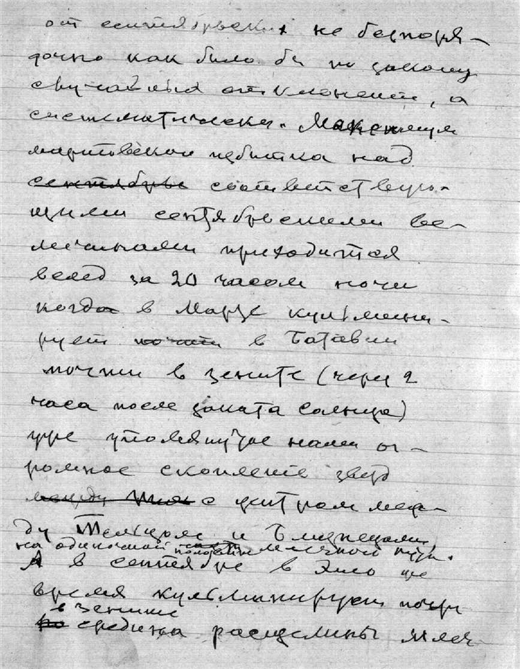 от сентябрьских не беспоря-
дочно как было бы по закону
случайных отклонений, а
систематически. Максимум
мартовского избытка над
сентябрь соответствую-
щими сентябрьскими ве-
личинами приходится
вслед за 20 часом ночи
когда в Марте кульмини-
рует почти в Батавии
почти в зените (через 2
часа после заката солнца)
уже упомянутое нами ог-
ромное скопление звезд
между с центром меж-
ду Тельцом и Близнецами
на одиночной половине млечного пути.
А в сентябре в это же
время кульминирует почти
в зените
средина расщелины млеч-